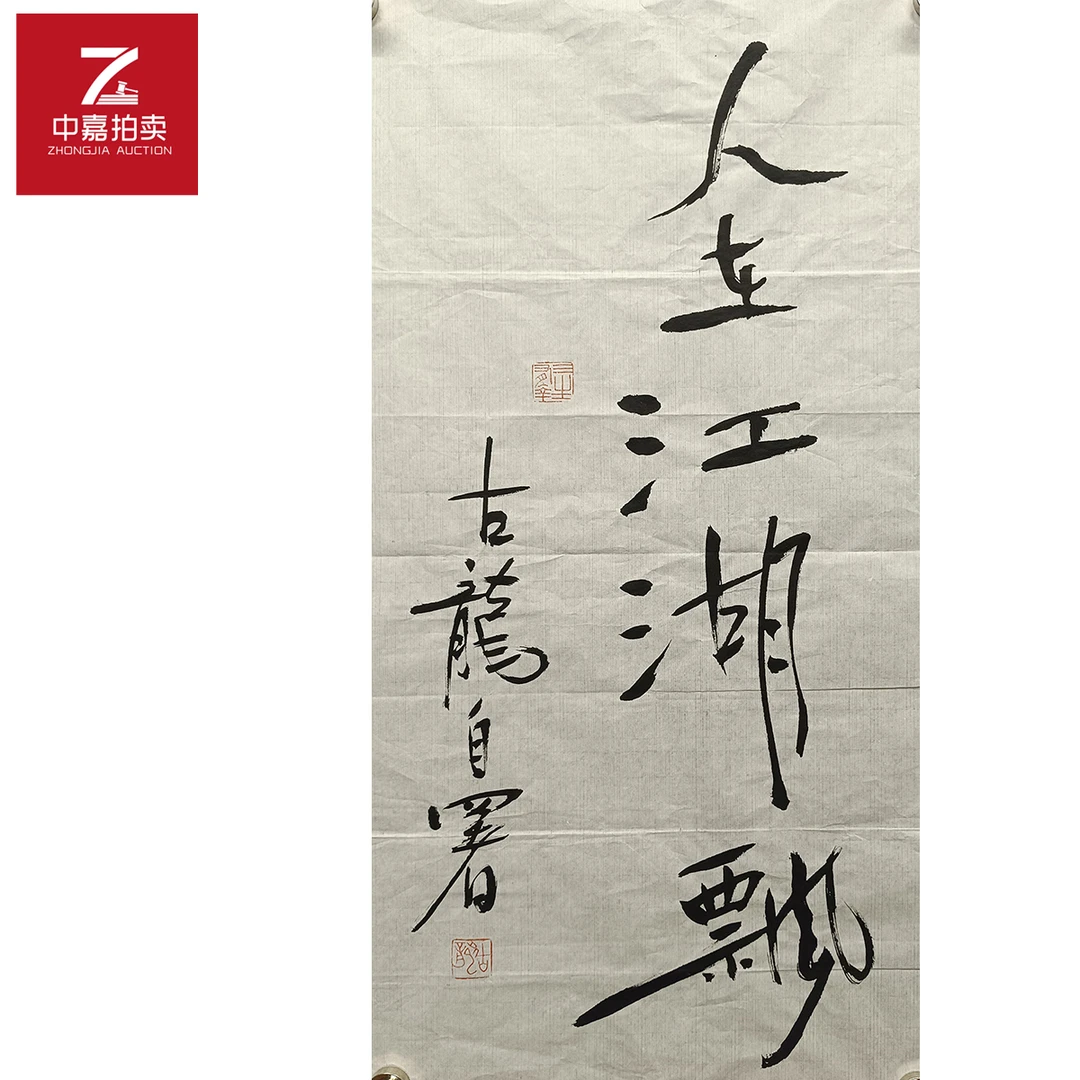 中嘉拍卖
ZHONGJIA AUCTION
人在江湖飘
古龍自署
古龍